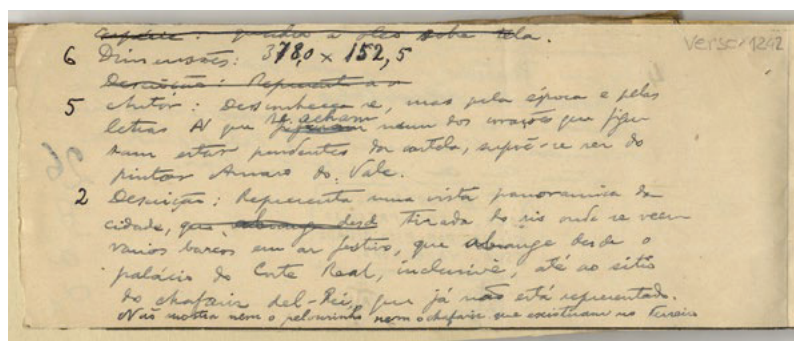 espécie: quadro a óleo sobre tela.
verso/1242
6 Dimensões: 378,0 x 152,5
Descrição: Representa a
5 Autor: Desconhece-se, mas pela época e pelas
letras A V que se acham num dos corações que figu-
ram estar pendentes da cartela, supõe-se ser do
pintor Amaro do Vale.
2 Descrição: Representa uma vista panoramica da
cidade, que abrange desde tirada do rio onde se veem
varios barcos em ar festivo, que abrange desde o
palácio do Corte Real, inclusivè, até ao sitio
do chafariz del-Rei, que já não está representado.
Não mostra nem o pelourinho nem o chafariz que existiram no Terreiro